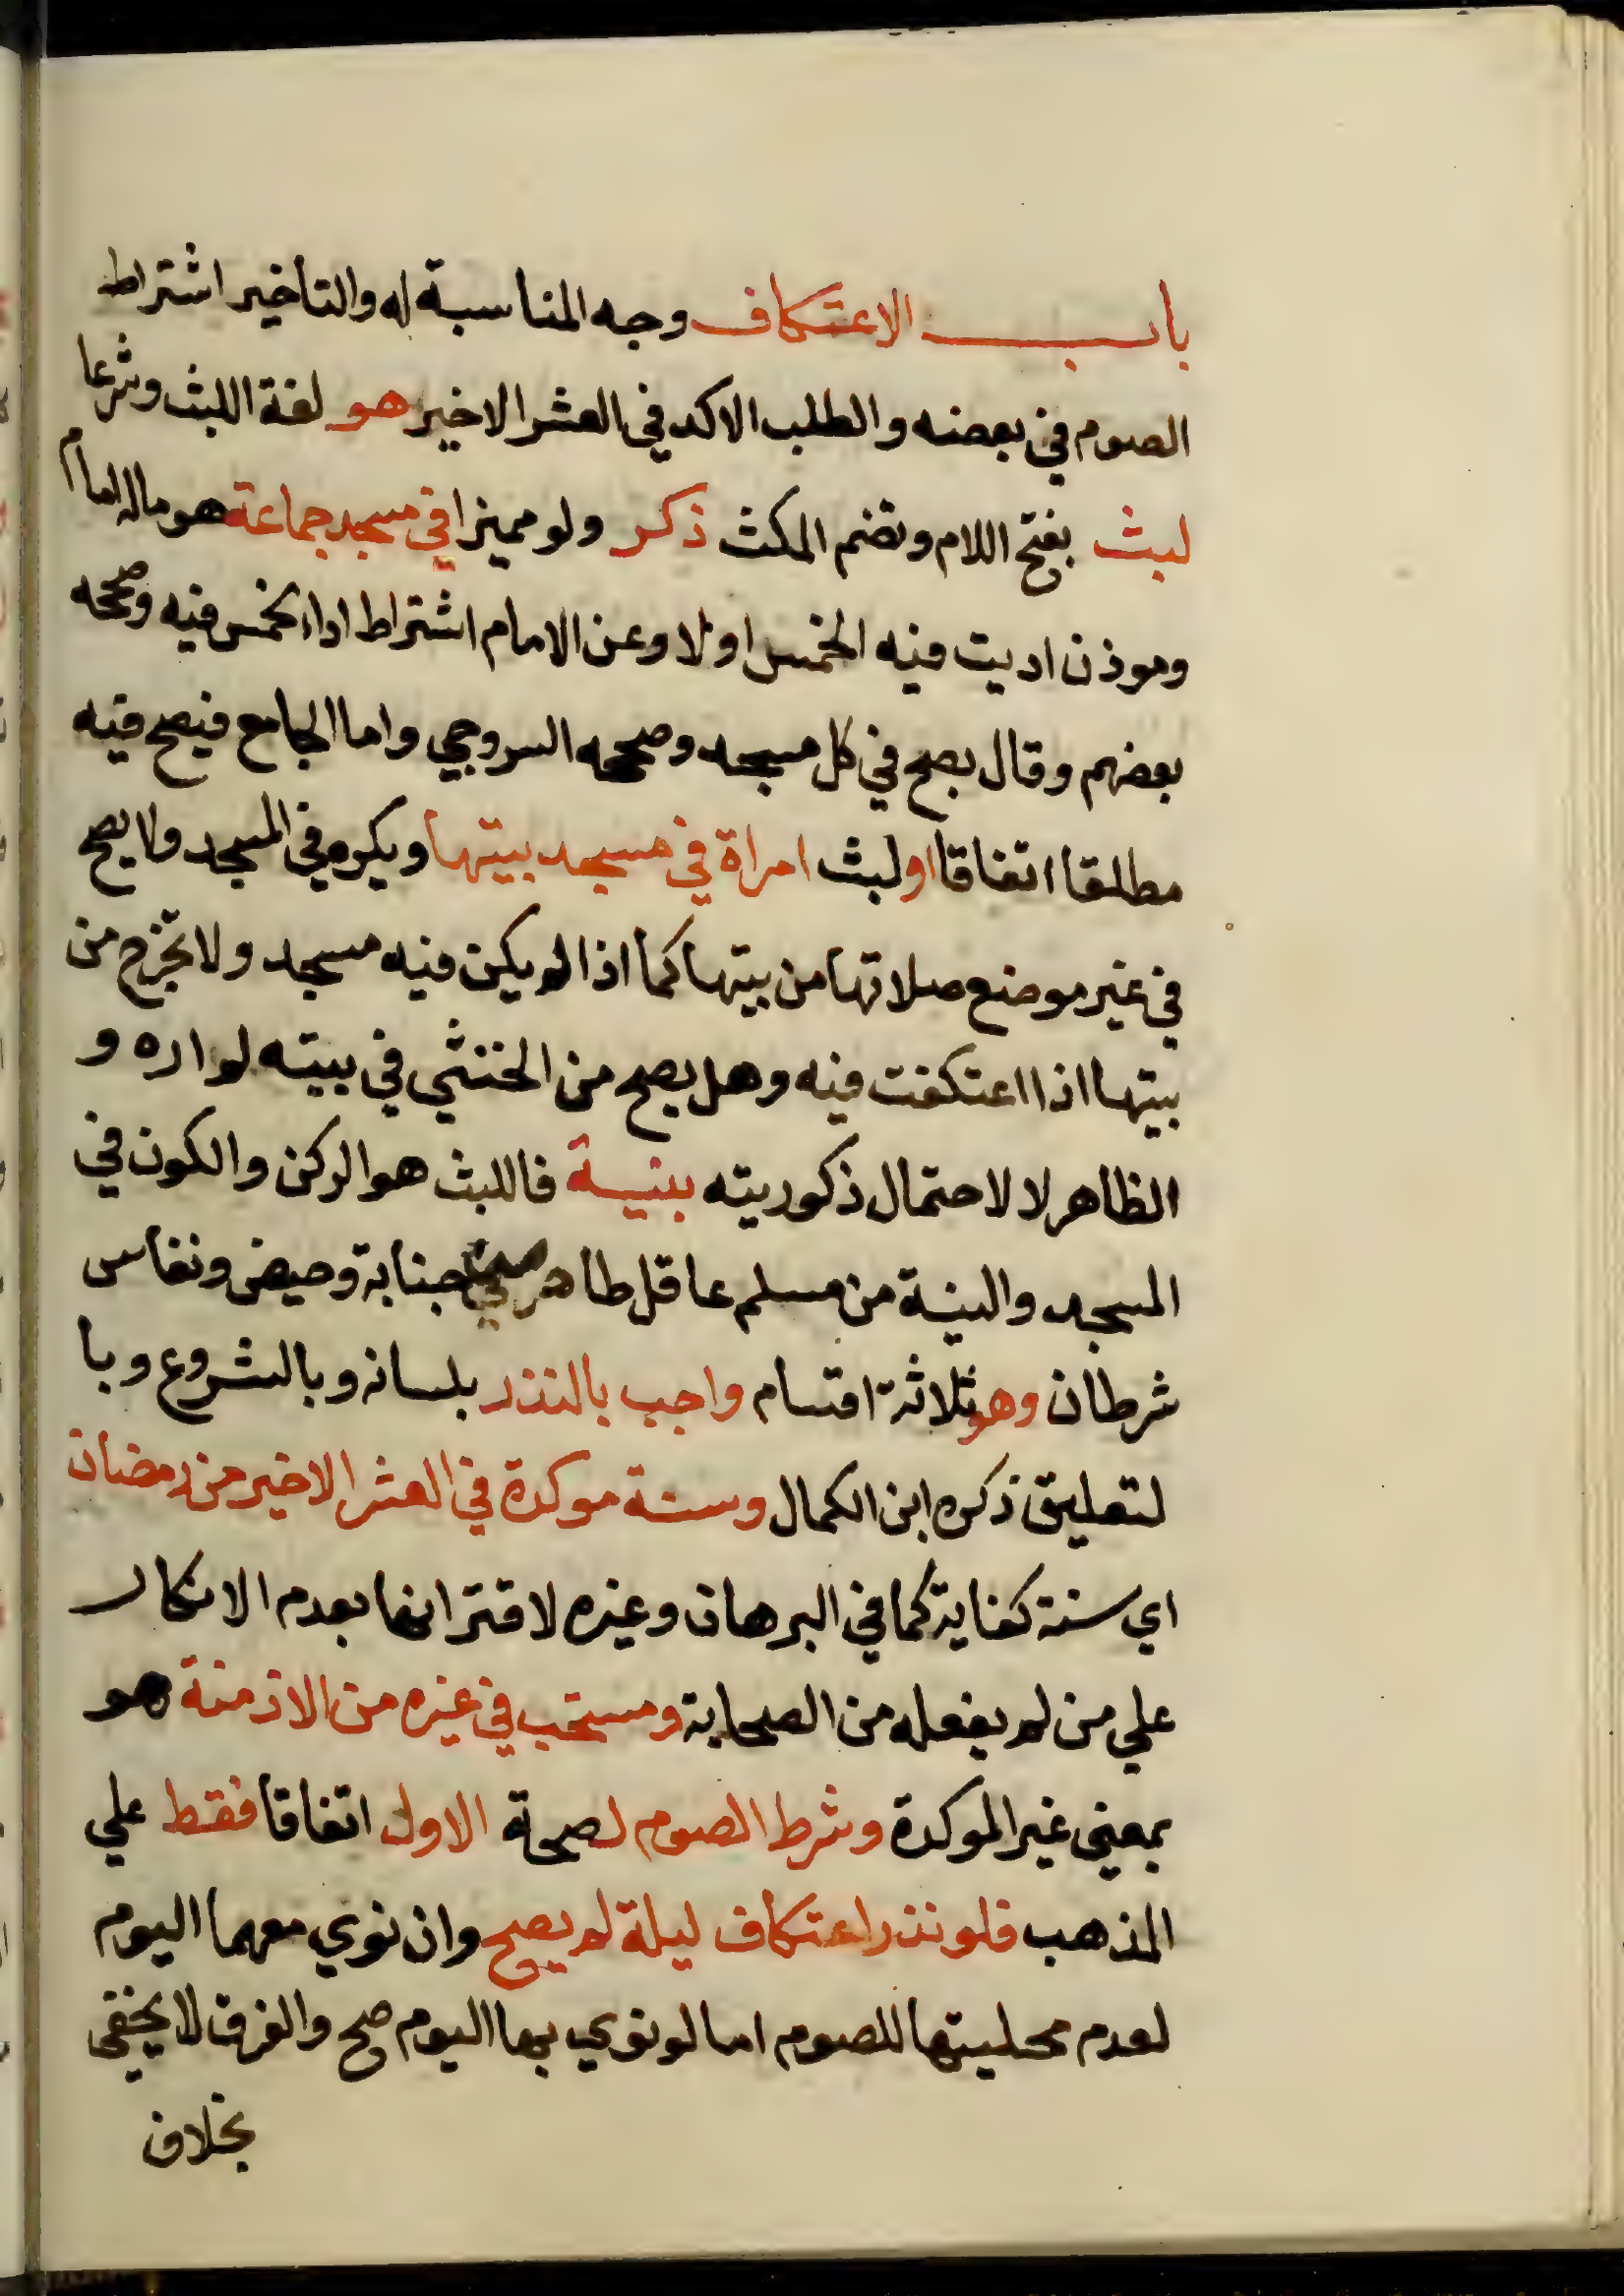 باب الاعتكاف وجه المناسبة له والتأخير اشتراط
الصوم في بعضه والطلب الاكد في العشر الاخير هو لغة اللبث وشرعا
لبث بفتح اللام وتضم المكث ذكر ولو مميزا في مسجد جماعة هو ماله امام
وموذن اديت فيه الخمس اولا وعن الامام اشتراط اداء الخمس فيه وصححه
بعضهم وقال يصح في كل مسجد وصححه السروجي واما الجامع فيصح فيه
مطلقا اتفاقا او لبث امراة في مسجد بيتها ويكره في المسجد ولا يصح
في غير موضع صلاتها من بيتها كما اذا لم يكن فيه مسجد ولا تخرج من
بيتها اذا اعتكفت فيه وهل يصح من الخنثي في بيته لم اره و
الظاهر لا لاحتمال ذكوريته بنية فاللبث هو الركن والكون في
المسجد والنية من مسلم عاقل طاهر من جنابة وحيض ونفاس
شرطان وهو ثلاثة اقسام واجب بالنذر بلسانه وبالشروع وبا
لتعليق ذكره ابن الكمال وسنة موكدة في العشر الاخير من رمضان
اي سنة كفاية كما في البرهان وغيره لاقترانها بعدم الانكار
علي من لم يفعله من الصحابة ومستحب في غيره من الازمنة هو
بمعني غير الموكدة وشرط الصوم لصحة الاول اتفاقا فقط علي
المذهب فلو نذر اعتكاف ليلة لم يصح وان نوي معهما اليوم
لعدم محليتها للصوم اما لو نوي بها اليوم صح والفرق لا يخفى
بخلاف